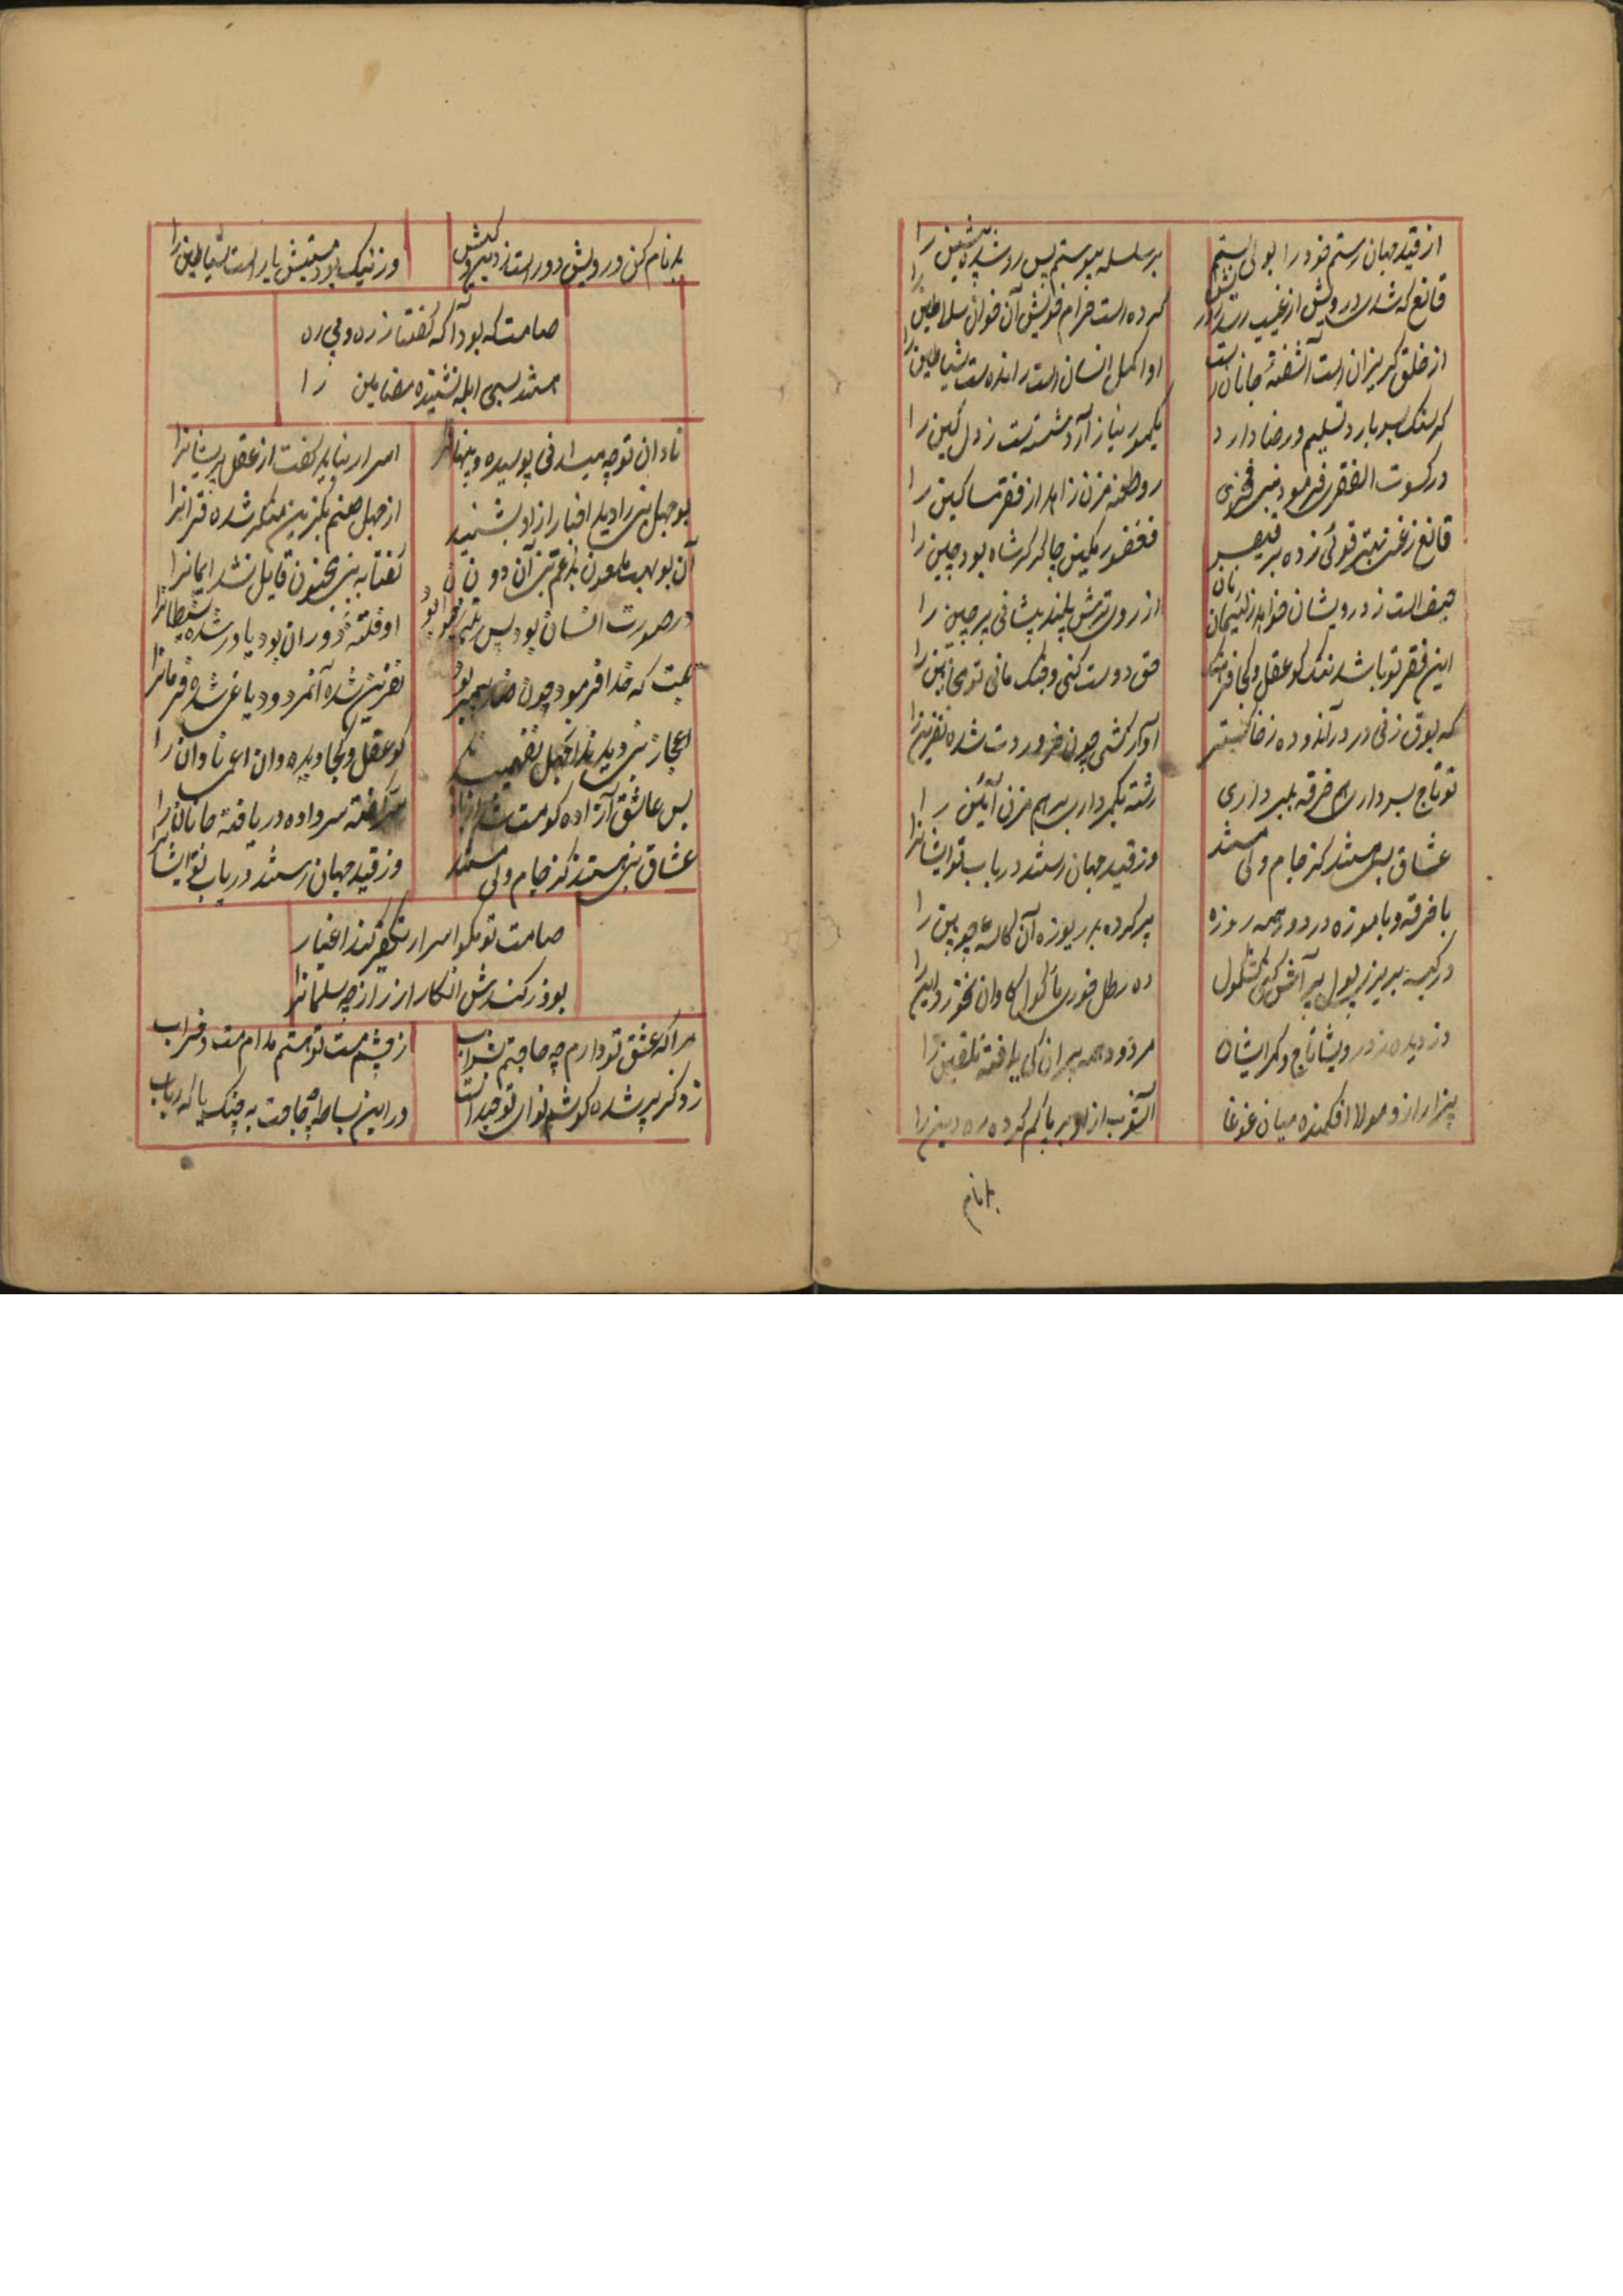 از قید جهان رستم خود را بولی بستم
بر سلسله پیوستم پس رو شده پیشین را
قانع که شد درویش از غیب رسد
کرده است حرام خویش آن خوان سلاطین را
از خلق گریزان است آشفتهٔ جانان است
او اکمل انسان است رانده ست شیاطین را
گر سنگ بسر بارد تسلیم و رضا دارد
یکمو نیازارد شسته ست ز دل کین را
در کسوت الفقر فرمود نبی فخری
رو طعنه مزن زاهد از فقر مساکین را
قانع
فغفور کمین چاکر گر شاه بود چین را
حیف است ز درویشان خواهد ز لئیمان نان
از روی ترش بیند پیشانی پرچین را
این فقر تو باشد ننگ کو عقل و کجا فرهنگ
حق دوست کنی و جنگ مانی تو
که بوق زنی در در آندوده ز خاکستر
شده نفرین را
تو تاج بسر داری هم خرقه ببر داری
رشته بکمر داری برهم مزن آئین را
عشاق مستند کز جام ولی مستند
وز قید جهان رستند دریاب تو ایشانرا
با خرقه و با موزه در دور همه روزه
پر کرده بدریوزه آن کاسهٔ چوبین را
در کیسه پر از پول پر آش کنی کشکول
ده رطل خوری
دزدیده ز درویشان تاج و کمر ایشان
مردود همه پیران کی یافته تلقین را
بیزار ازو مولا افکنده میان غوغا
آشوب ازو برپا گم کرده ره دین را
بدنام
بدنام کن درویش دور است از
وز نیک بود یار است شیاطین را
صامت که بود آگه گفتا ز ره و بی ره
ابله نشنیده مضامین را
نادان تو چه میدانی پوسیده و پنهانرا
اسرار نباید گفت از عقل پریشانرا
بوجهل نبی را دید اخبار ازو بشنید
از جهل منکر شده قرآنرا
آن بولهب ملعون بد عم نبی آن دون
گفتا به نبی مجنون قایل نشد ایمانرا
در صورت انسان بود پس
او فتنهٔ دوران بود یاور شده شیطانرا
تبت که خدا فرمود چون ضد پیمبر بود
نفرین شده آنمردود یاغی شده فرمانرا
اعجاز نبی دیدند از جهل نفهمیدند
کو عقل و کجا دیده دان اعمی نادان را
پس عاشق آزاده کو مست شد از باده
سر داده دریافته جانان را
عشاق نبی مستند کز جام ولی مستند
وز قید جهان رستند دریاب تو ایشانرا
صامت تو مگو اسرار تکفیر کند اغیار
بوذر کندش انکار از راز چه سلمانرا
مرا که عشق تو دارم چه حاجتم بشراب
ز چشم مست تو هستم مدام مست و خراب
ز ذکر پر شده گوشم نوای توحید است
در این بساط چه حاجت به چنگ یا که رباب